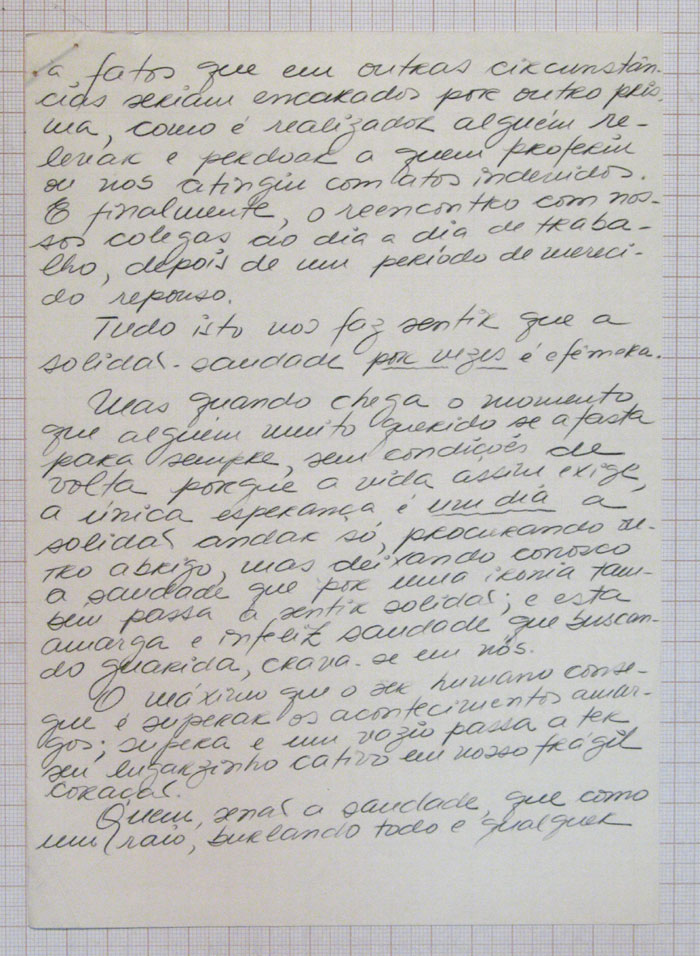 a fatos que em outras circunstân-
cias seriam encarados por outro pris-
ma, como é realizador alguém re-
levar e perdoar a quem proferiu
ou nos atingiu com atos indevidos.
E finalmente, o reencontro com nos-
sos colegas do dia a dia de traba-
lho, depois de um período de mereci-
do repouso.
Tudo isto nos faz sentir que a
solidão-saudade por vezes é efêmera.
Mas quando chega o momento
que alguém muito querido se afasta
para sempre, sem condições de
volta porque a vida assim exige,
a única esperança é um dia a
solidão andar só, procurando ou-
tro abrigo, mas deixando conosco
a saudade que por uma ironia tam-
bém passa a sentir solidão; e esta
amarga e infeliz saudade que buscan-
do guarida, crava-se em nós.
O máximo que o ser humano conse-
gue é superar os acontecimentos amar-
gos; supera e um vazio passa a ter
seu lugarzinho cativo em nosso frágil
coração.
Quem, senão a saudade, que como
um raio, burlando todo e qualquer